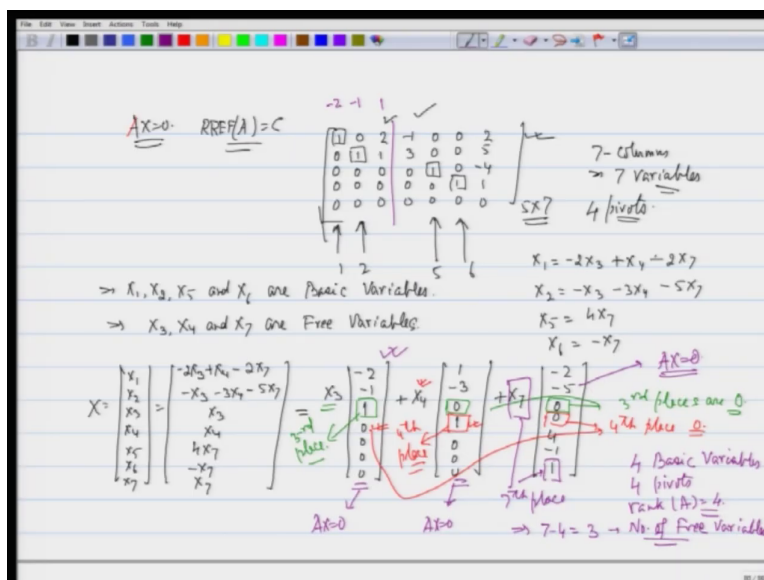 File Edit View Insert Actions Tools Help
B I
-2 -1 1
AX=0. RREF(A)=C
1 0 2 -1 0 0 2
0 1 1 3 0 0 5
0 0 0 0 1 0 -4
0 0 0 0 0 1 1
0 0 0 0 0 0 0
5x7
7-columns
7 variables
4 pivots.
1 2 5 6
x1 = -2x3 + x4 - 2x7
x2 = -x3 - 3x4 - 5x7
x5 = 4x7
x6 = -x7
⇒ x1, x2, x5 and x6 are Basic Variables.
⇒ x3, x4 and x7 are Free Variables.
AX=0
X = [x1 x2 x3 x4 x5 x6 x7] = [-2x3+x4-2x7 -x3-3x4-5x7 x3 x4 4x7 -x7 x7] = x3 [-2 -1 1 0 0 0 0] + x4 [1 -3 0 1 0 0 0] + x7 [-2 -5 0 0 4 -1 1]
3rd place
4th place
7th place
3rd places are 0.
4th place 0.
AX=0
AX=0
4 Basic Variables
4 pivots
rank(A)=4.
⇒ 7-4=3 → No. of Free Variables